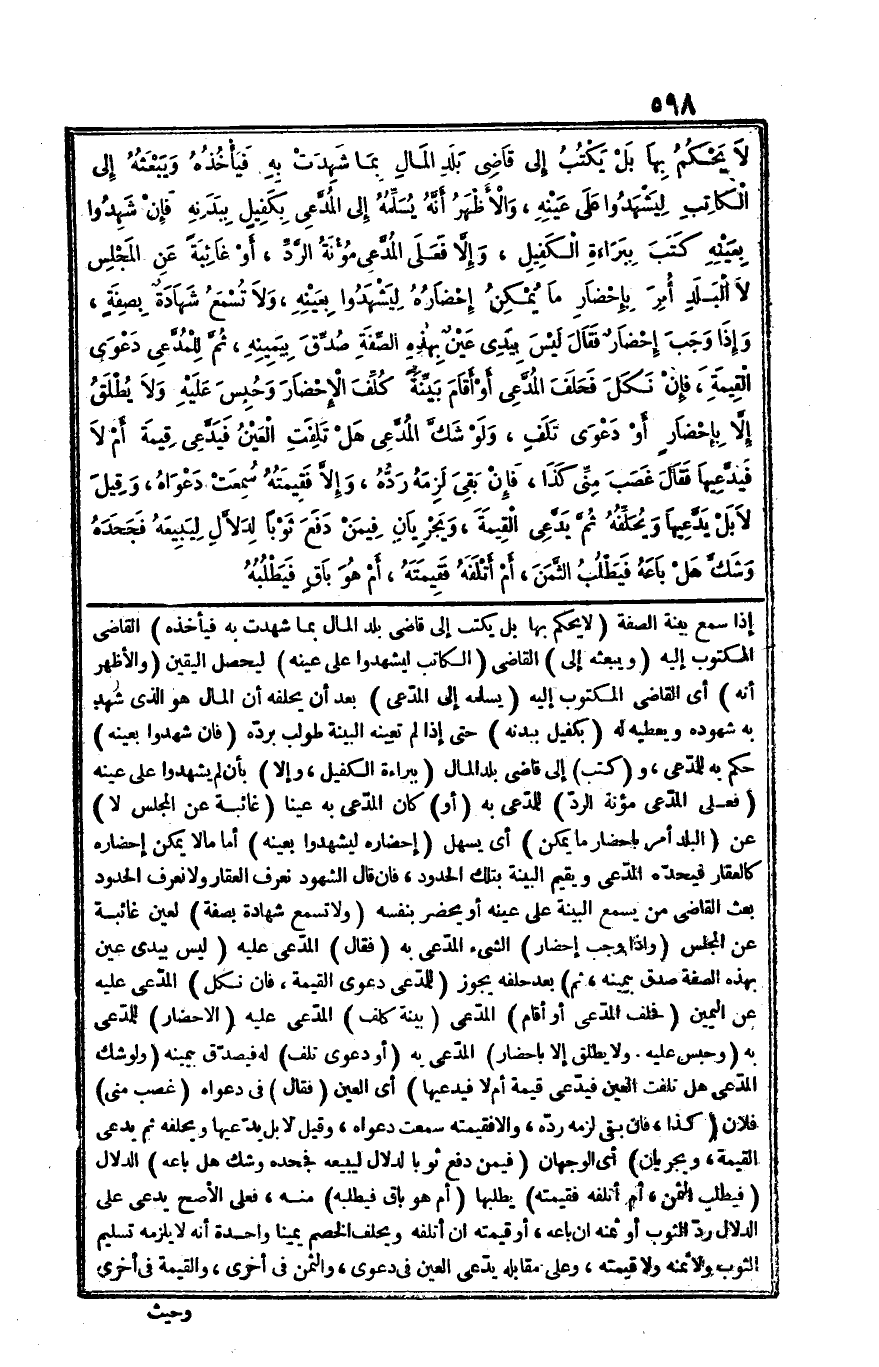 ٥٩٨
لَا يَحْكُمُ بِهَا بَلْ يَكْتُبُ إِلَى قَاضِى بَلَدِ الْمَالِ بِمَا شَهِدَتْ بِهِ فَيَأْخُذُهُ وَيَبْعَثُهُ إِلَى
الْكَاتِبِ لِيَشْهَدُوا عَلَى عَيْنِهِ ، وَالْأَظْهَرُ أَنَّهُ يُسَلِّمُهُ إِلَى الْمُدَّعِى بِكَفِيلٍ بِبَدَنِهِ فَإِنْ شَهِدُوا
بِعَيْنِهِ كَتَبَ بِبَرَاءَةِ الْكَفِيلِ ، وَإِلَّا فَعَلَى الْمُدَّعِى مُؤْنَةُ الرَّدِّ ، أَوْ غَائِبَةً عَنِ الْمَجْلِسِ
لَا الْبَلَدِ أُمِرَ بِإِحْضَارِ مَا يُمْكِنُ إِحْضَارُهُ لِيَشْهَدُوا بِعَيْنِهِ ، وَلَا تُسْمَعُ شَهَادَةٌ بِصِفَةٍ ،
وَإِذَا وَجَبَ إِحْضَارٌ فَقَالَ لَيْسَ بِيَدِى عَيْنٌ بِهٰذِهِ الصِّفَةِ صُدِّقَ بِيَمِينِهِ ، ثُمَّ لِلْمُدَّعِى دَعْوَى
الْقِيمَةِ ، فَإِنْ نَكَلَ فَحَلَفَ الْمُدَّعِى أَوْ أَقَامَ بَيِّنَةً كُلِّفَ الْإِحْضَارَ وَحُبِسَ عَلَيْهِ وَلَا يُطْلَقُ
إِلَّا بِإِحْضَارٍ أَوْ دَعْوَى تَلَفٍ ، وَلَوْ شَكَّ الْمُدَّعِى هَلْ تَلِفَتِ الْعَيْنُ فَيَدَّعِى قِيمَةً أَمْ لَا
فَيَدَّعِيهَا فَقَالَ غَصَبَ مِنِّى كَذَا ، فَإِنْ بَقِىَ لَزِمَهُ رَدُّهُ ، وَإِلَّا فَقِيمَتُهُ سُمِعَتْ دَعْوَاهُ ، وَقِيلَ
لَا بَلْ يَدَّعِيهَا وَيُحَلِّفُهُ ثُمَّ يَدَّعِى الْقِيمَةَ ، وَيَجْرِيَانِ فِيمَنْ دَفَعَ ثَوْبًا لِدَلَّالٍ لِيَبِيعَهُ فَجَحَدَهُ
وَشَكَّ هَلْ بَاعَهُ فَيَطْلُبُ الثَّمَنَ ، أَمْ أَتْلَفَهُ فَقِيمَتَهُ ، أَمْ هُوَ بَاقٍ فَيَطْلُبُهُ
إذا سمع بينة الصفة ( لايحكم بها بل يكتب إلى قاضى بلد المال بما شهدت به فيأخذه ) القاضى
المكتوب إليه ( ويبعثه إلى ) القاضى ( الكاتب ليشهدوا على عينه ) ليحصل اليقين ( والأظهر
أنه ) أى القاضى المكتوب إليه ( يسلمه إلى المدّعى ) بعد أن يحلفه أن المال هو الذى شهد
به شهوده ويعطيه له ( بكفيل ببدنه ) حتى إذا لم تعينه البينة طولب بردّه ( فان شهدوا بعينه )
حكم به للمدّعى ، و ( كتب ) إلى قاضى بلد المال ( ببراءة الكفيل ، وإلا ) بأن لم يشهدوا على عينه
( فعلى المدّعى مؤنة الردّ ) للمدّعى به ( أو ) كان المدّعى به عينا ( غائبة عن المجلس لا )
عن ( البلد أمر باحضار ما يمكن ) أى يسهل ( إحضاره ليشهدوا بعينه ) أما مالا يمكن إحضاره
كالعقار فيحدّه المدّعى ويقيم البينة بتلك الحدود ، فان قال الشهود نعرف العقار ولا نعرف الحدود
بعث القاضى من يسمع البينة على عينه أو يحضر بنفسه ( ولا تسمع شهادة بصفة ) لعين غائبة
عن المجلس ( واذا وجب إحضار ) الشىء المدّعى به ( فقال ) المدّعى عليه ( ليس بيدى عين
بهذه الصفة صدق بيمينه ، ثم ) بعد حلفه يجوز ( للمدّعى دعوى القيمة ، فان نكل ) المدّعى عليه
عن اليمين ( فحلف المدّعى أو أقام ) المدّعى ( بينة كلف ) المدّعى عليه ( الاحضار ) للمدّعى
به ( وحبس عليه . ولا يطلق إلا باحضار ) المدّعى به ( أو دعوى تلف ) له فيصدّق بيمينه ( ولو شك
المدّعى هل تلفت العين فيدّعى قيمة أم لا فيدعيها ) أى العين ( فقال ) فى دعواه ( غصب منى )
فلان ( كذا ، فان بقى لزمه ردّه ، والا فقيمته سمعت دعواه ، وقيل لا بل يدّعيها ويحلفه ثم يدعى
القيمة ، ويجريان ) أى الوجهان ( فيمن دفع ثوبا لدلال ليبيعه فجحده وشك هل باعه ) الدلال
( فيطلب الثمن ، أم أتلفه فقيمته ) يطلبها ( أم هو باق فيطلبه ) منه ، فعلى الأصح يدعى على
الدلال ردّ الثوب أو ثمنه ان باعه ، أو قيمته ان أتلفه ويحلف الخصم يمينا واحدة أنه لا يلزمه تسليم
الثوب ولا ثمنه ولا قيمته ، وعلى مقابله يدّعى العين فى دعوى ، والثمن فى أخرى ، والقيمة فى أخرى
وحيث